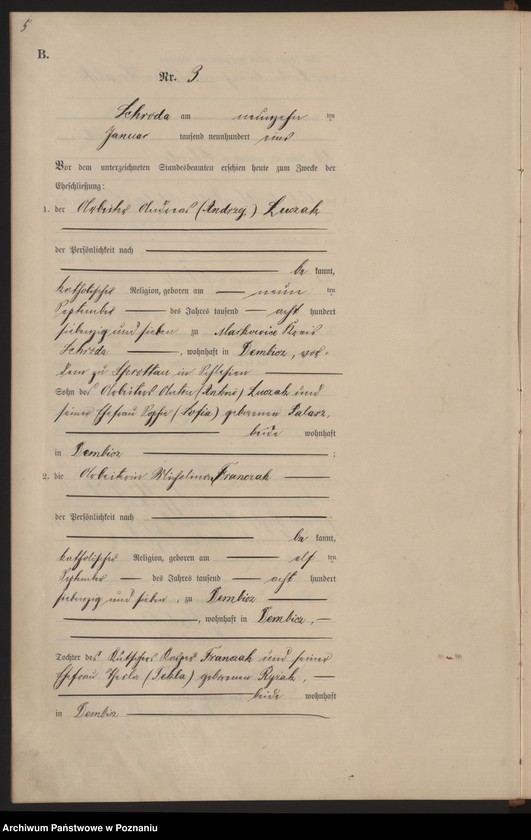 5
B.
Nr. 3.
Schroda am neunzehn ten
Januar tausend neunhundert eins
Vor dem unterzeichneten Standesbeamten erschien heute zum Zwecke der
Eheschließung:
1. der Arbeiter Andreas (Andrzej) Luczak
der Persönlichkeit nach
be kannt,
katholischer Religion, geboren am neun ten
September des Jahres tausend acht hundert
siebenzig und sieben zu Markowice Kreis
Schroda, wohnhaft in Dembicz, vor-
dem zu Sprottau in Schlesien
Sohn des Arbeiters Anton (Antoni) Luczak und
seiner Ehefrau Sophie (Zofia) geborenen Palacz,
beide wohnhaft
in Dembicz ;
2. die Arbeiterin Michalina Franczak
der Persönlichkeit nach
be kannt,
katholischer Religion, geboren am elf ten
September des Jahres tausend acht hundert
siebenzig und sieben, zu Dembicz
, wohnhaft in Dembicz,
Tochter des Kutschers Franczak und seiner
Ehefrau Thekla (Tekla) geborenen
beide wohnhaft
in Dembicz
Archiwum Państwowe w Poznaniu